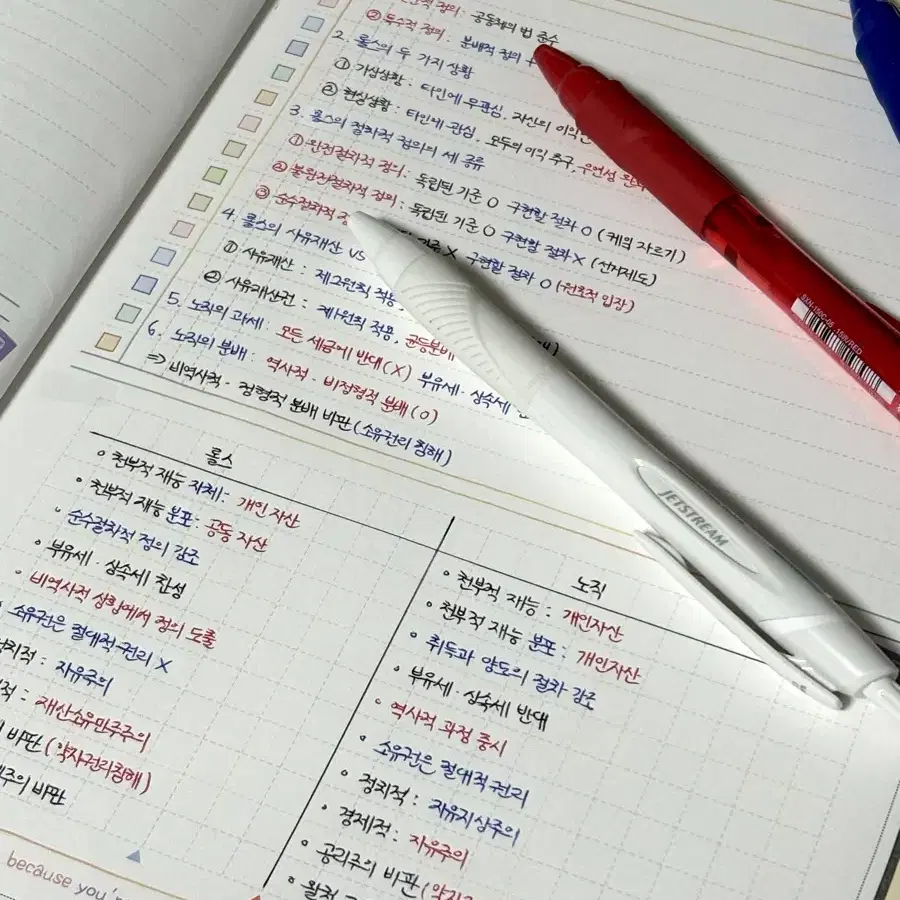 정의 : 공동체의 법 준수
② 특수적 정의 : 분배적 정의 +
2. 롤스의 두 가지 상황
① 가상상황 : 타인에 무관심, 자신의 이익만
② 현실상황 : 타인에 관심, 모두의 이익 추구, 우연성 완화
3. 롤스의 절차적 정의의 세 종류
① 완전절차적 정의 : 독립된 기준 O 구현할 절차 O (케익 자르기)
② 불완전절차적 정의 : 독립된 기준 O 구현할 절차 X (선거제도)
③ 순수절차적 정 기준 X 구현할 절차 O (원초적 입장)
4. 롤스의 사유재산 VS
① 사유재산 : 제2원칙 적용,
② 사유재산권 : 제1원칙 적용, 균등분배
5. 노직의 과세 : 모든 세금에 반대 (X) 부유세·상속세
6. 노직의 분배 : 역사적·비정형적 분배 (O)
⇒ 비역사적·정형적 분배 비판 (소유권리 침해)
롤스
◦ 천부적 재능 자체 : 개인 자산
◦ 천부적 재능 분포 : 공동 자산
◦ 순수절차적 정의 강조
◦ 부유세·상속세 찬성
◦ 비역사적 상황에서 정의 도출
소유권은 절대적 권리 X
정치적 : 자유주의
적 : 재산소유민주주의
비판 (약자권리침해)
주의 비판
노직
◦ 천부적 재능 : 개인자산
◦ 천부적 재능 분포 : 개인자산
◦ 취득과 양도의 절차 강조
◦ 부유세·상속세 반대
◦ 역사적 과정 중시
◦ 소유권은 절대적 권리
◦ 정치적 : 자유지상주의
◦ 경제적 : 자유주의
◦ 공리주의 비판 (약자
because you'r
JETSTREAM
SXN-150C-05 .15#/RED